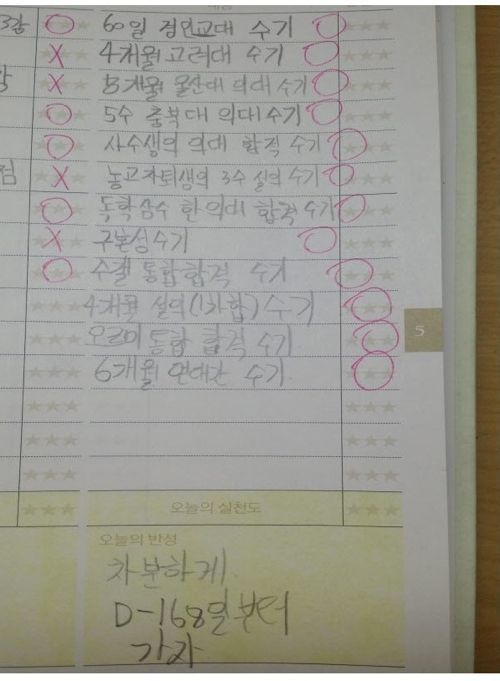 3강
60일 경인교대 수기
X
4개월 고려대 수기
X
8개월 울산대 의대 수기
5수 충북대 의대 수기
사수생의 의대 합격 수기
점
X
농고자퇴생의 3수 설의 수기
독학삼수 한의대 합격 수기
X
구본성 수기
수갤 통합합격 수기
4개월 설의(1차합) 수기
오르비 통합 합격 수기
6개월 연대간 수기
5
오늘의 실천도
오늘의 반성
차분하게
D-168일부터
가자